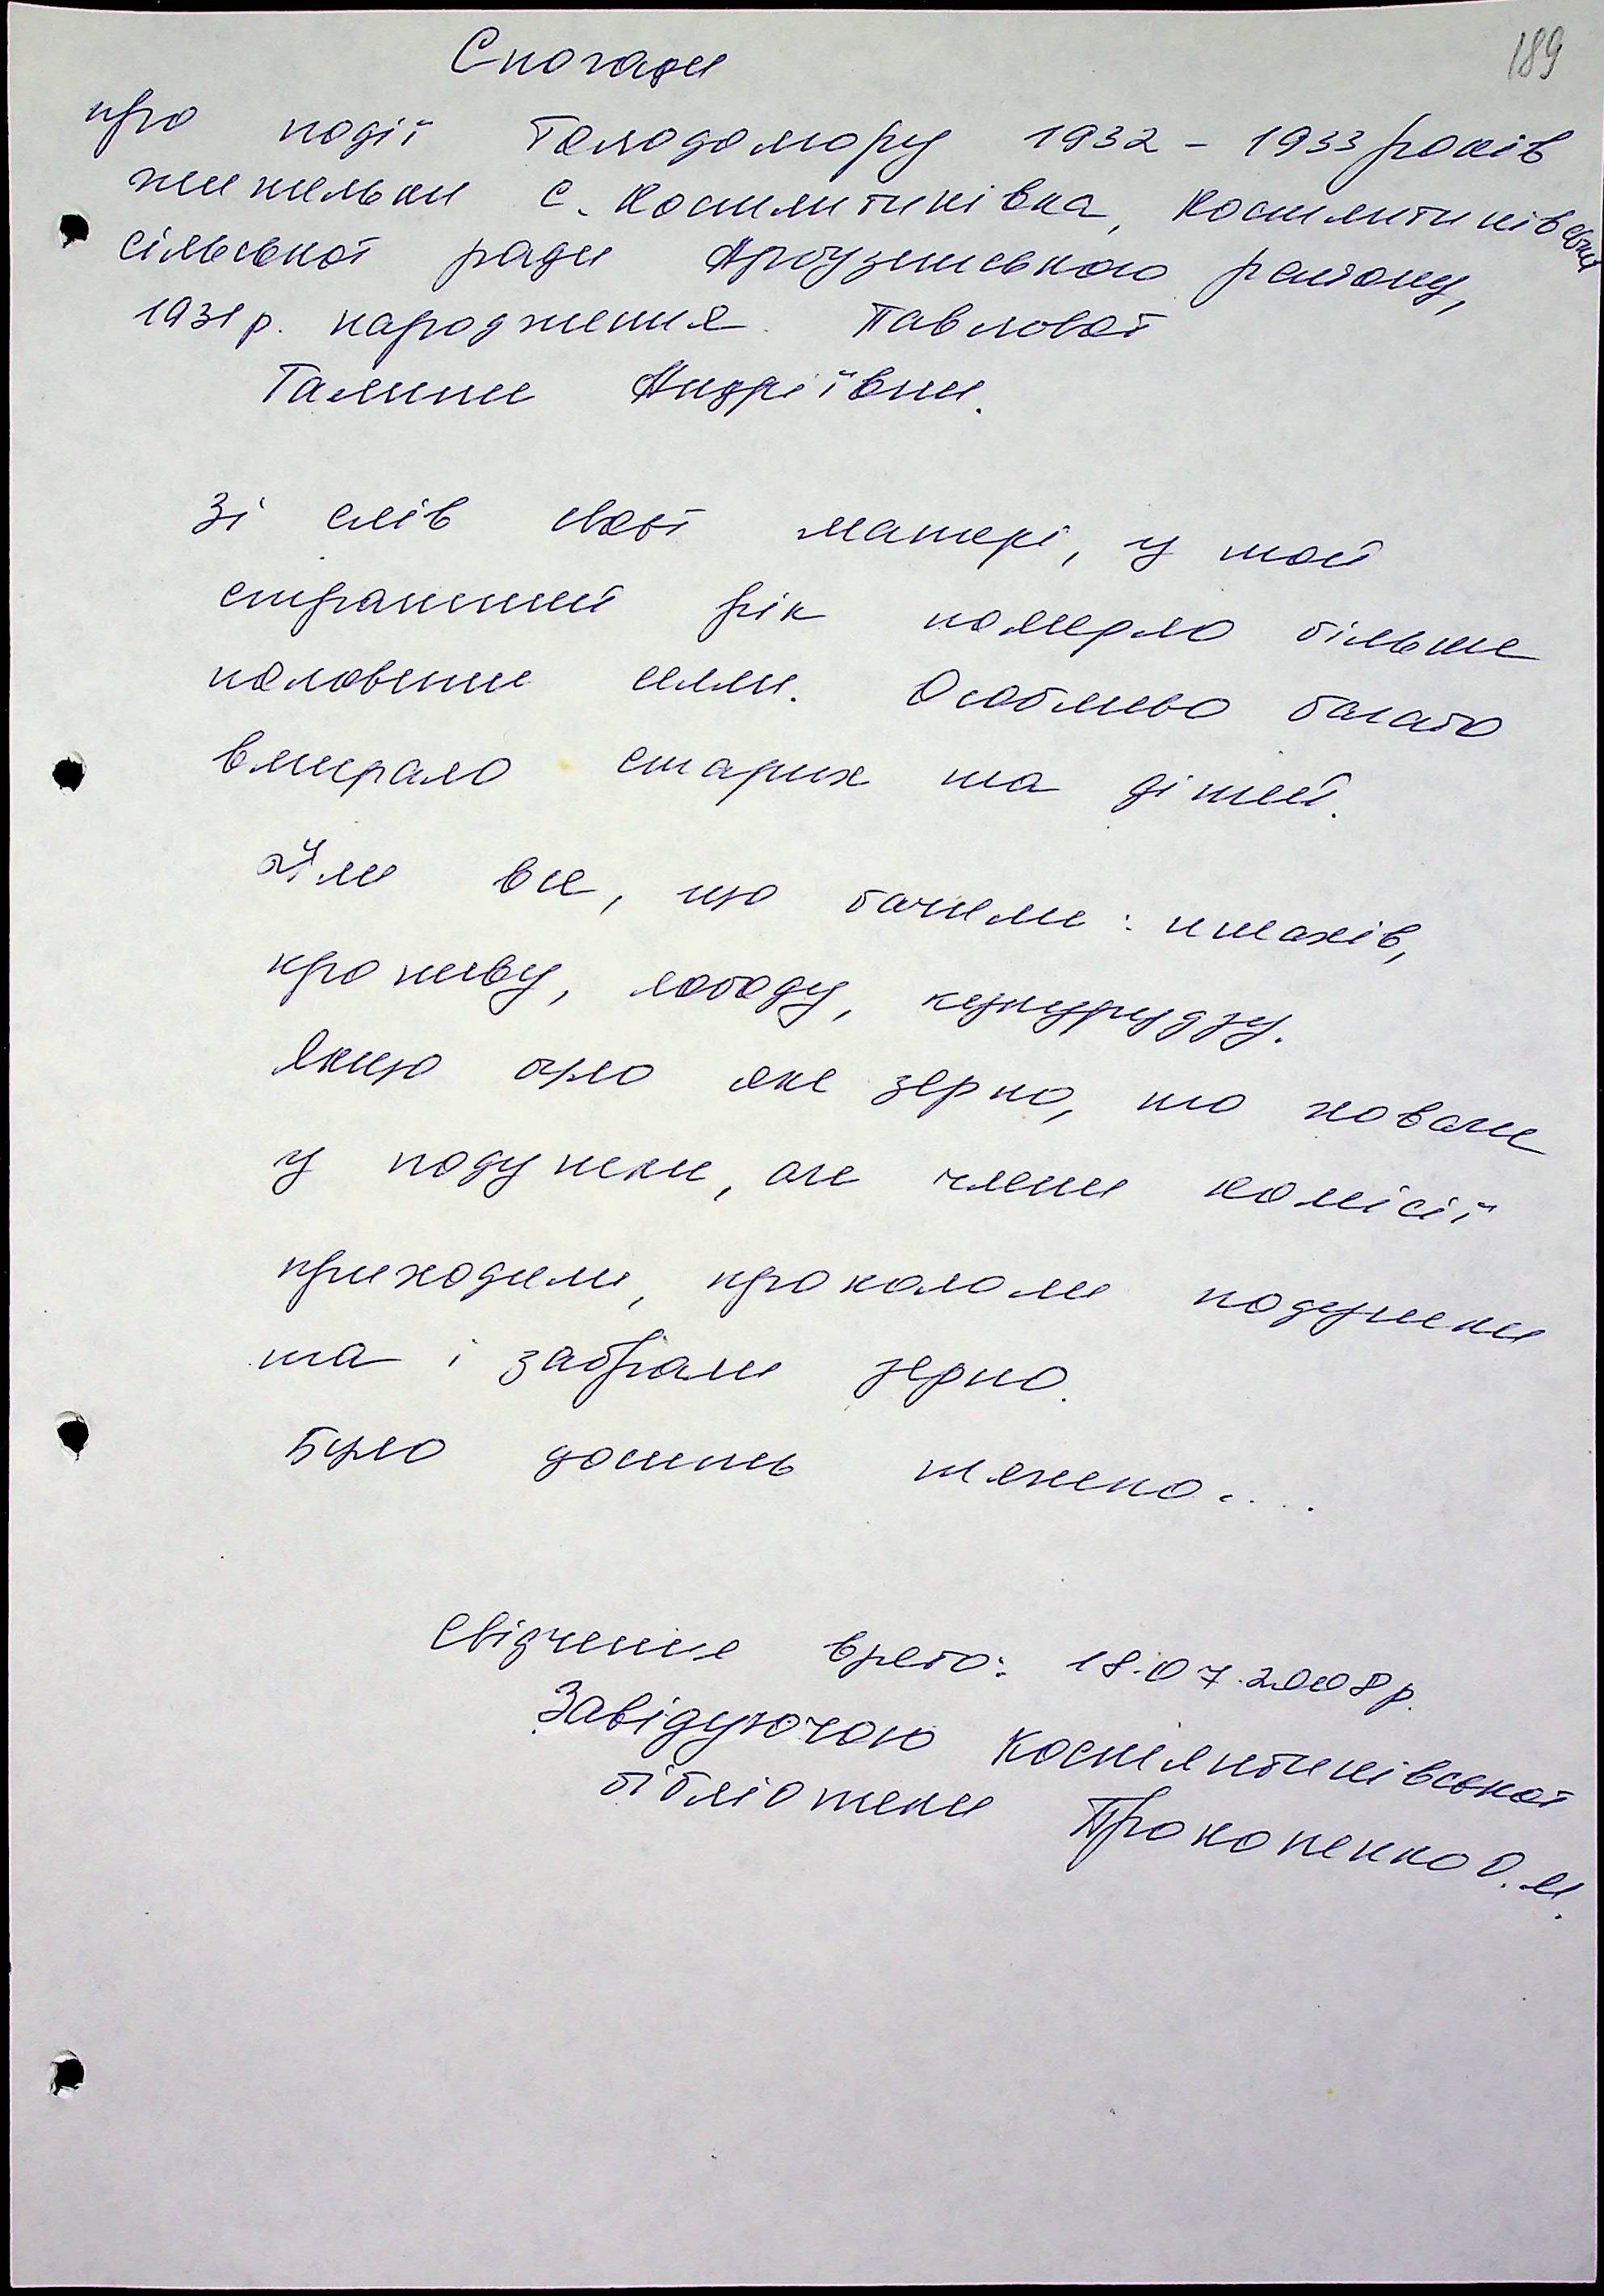 189
Спогади
про події Голодомору 1932 - 1933 років
жительки с. Костянтинівка, Костянтинівської
сільської ради Арбузинського району,
1931 р. народження Павлової
Галини Андріївни.
Зі слів своєї матері, у той
страшний рік померло більше
половини села. Особливо багато
вмирало старих та дітей.
Їли все, що бачили: птахів,
кропиву, лободу, кукурудзу.
Якщо було яке зерно, то ховали
у подушки, але члени комісії
приходили, прокололи подушки
та і забрали зерно.
Було досить тяжко....
Свідчення взято: 18.07.2008 р.
Завідуючою Костянтинівської
бібліотеки Прокопенко О. М.